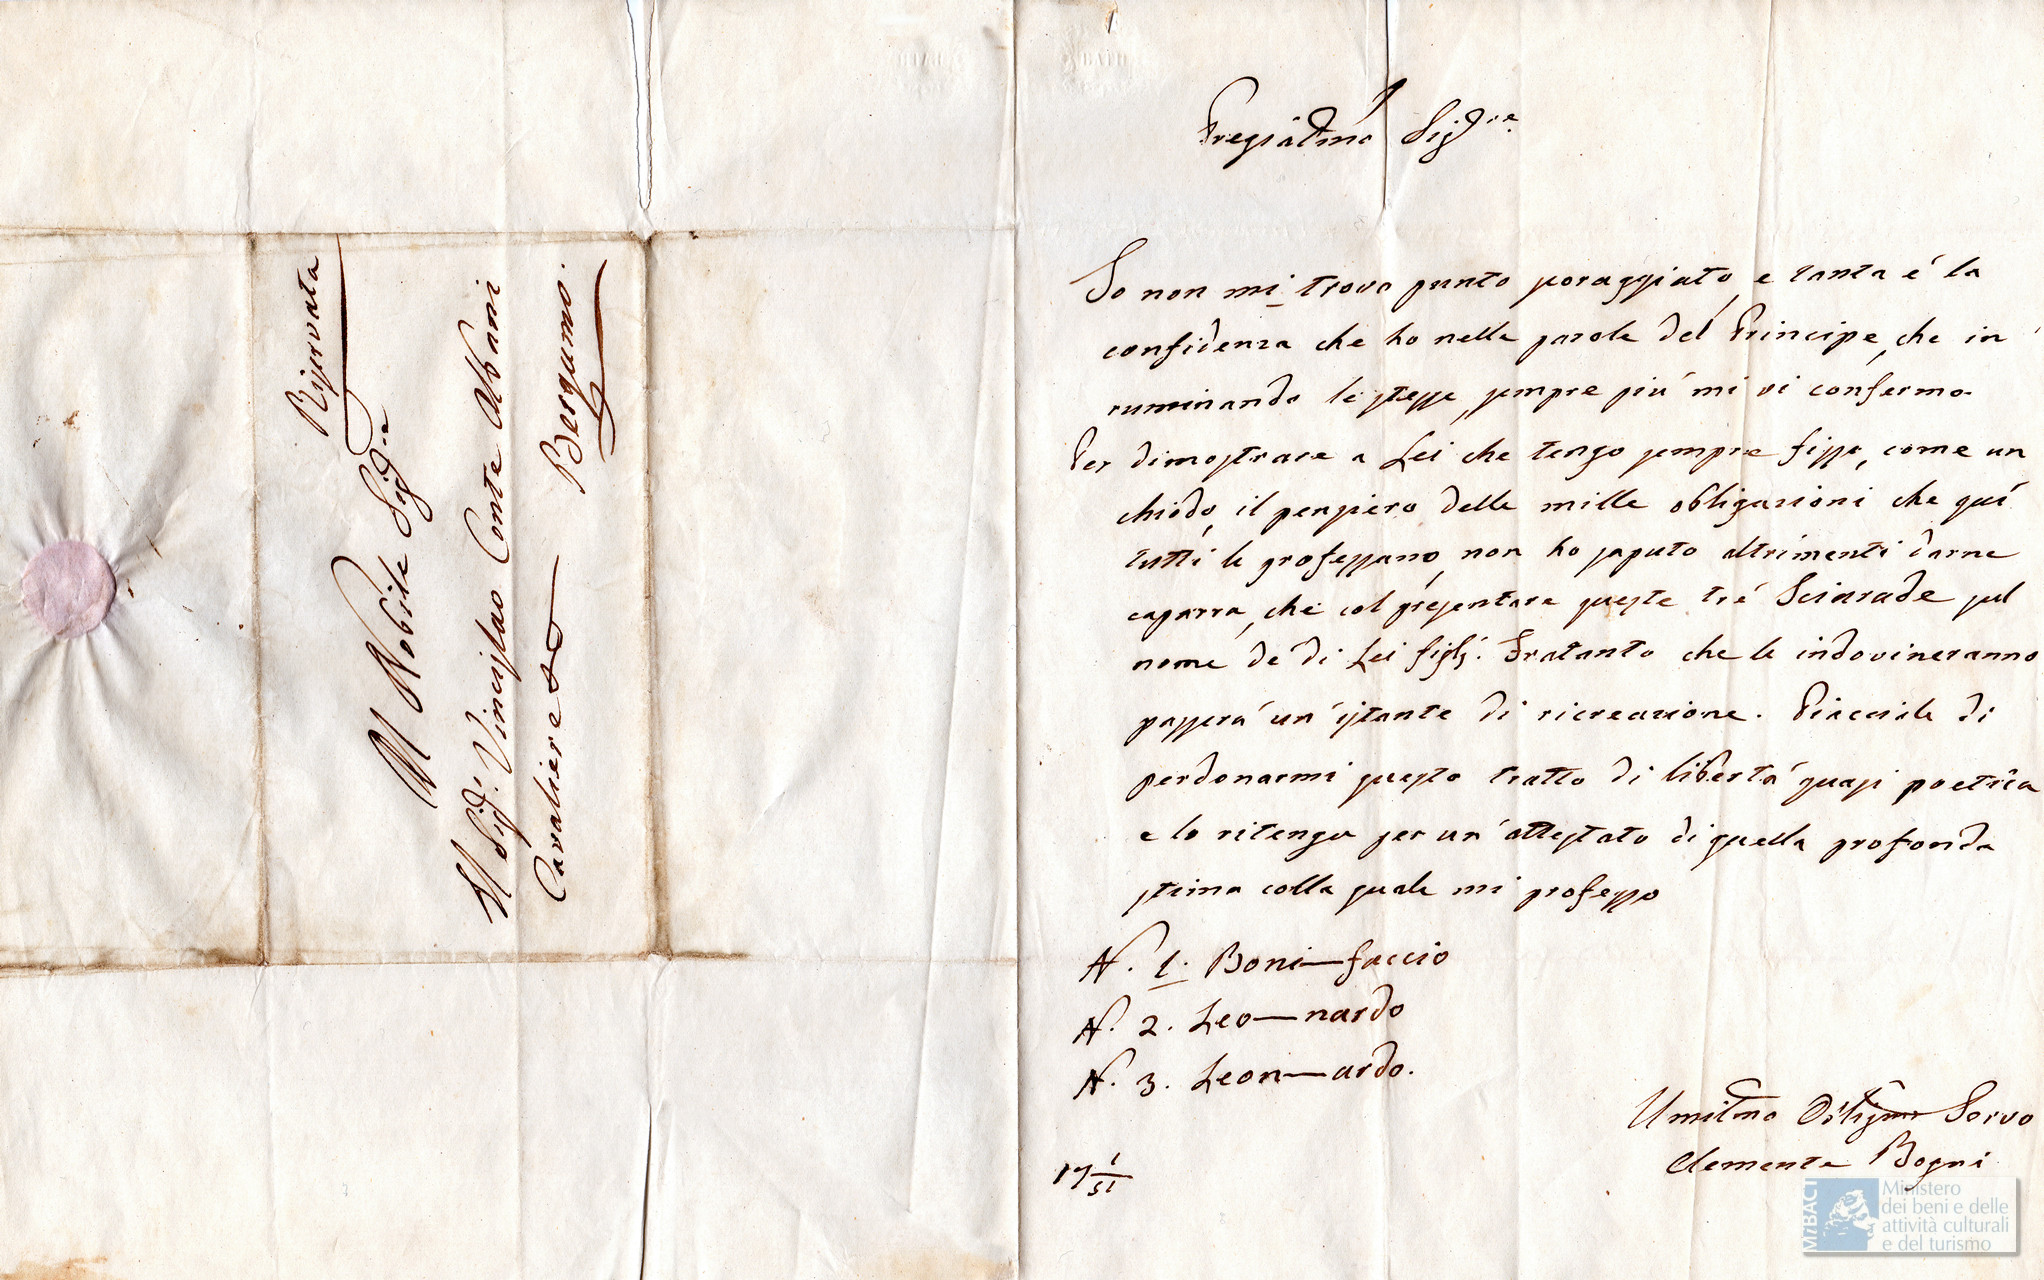 Riservata
Al Nobile Sigr.e
Al Sigr. Vincislao Conte Albani
Cavaliere
Bergamo.
Pregiatmo Sigr.e
Io non mi trovo punto scoraggiato, e tanta é la
confidenza che ho nelle parole del Principe, che in
ruminando le stesse, sempre piú mi vi confermo.
Per dimostrare a Lei che tengo sempre fisso, come un
chiodo, il pensiero delle mille obbligazioni che quí
tutti le professano, non ho saputo altrimenti darne
caparra, che col presentare queste tré Sciarade sul
nome de' di Lei figlj. Fratanto che le indovineranno
passerá un' istante di ricreazione. Piacciale di
perdonarmi questo tratto di libertá quasi poetica
e lo ritenga per un' attestato di quella profonda
stima colla quale mi professo
N. 1. Boni—faccio
N. 2. Leo—nardo
N. 3. Leon—ardo.
Umilmo Obligmo Servo
Clemente Bogni
17 1/51
MiBACT
Ministero
dei beni e delle
attività culturali
e del turismo